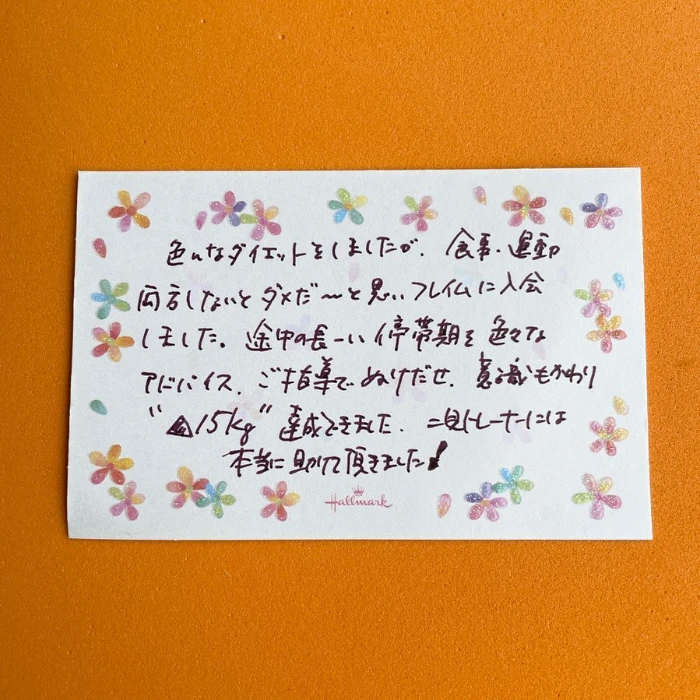 色んなダイエットをしましたが、食事・運動
両方しないとダメだ〜と思いフレイムに入会
しました。途中の長ーい停滞期を色々な
アドバイス、ご指導でぬけだせ、意識もかわり
"▲15kg" 達成できました。二見トレーナーには
本当に助けて頂きました!
Hallmark